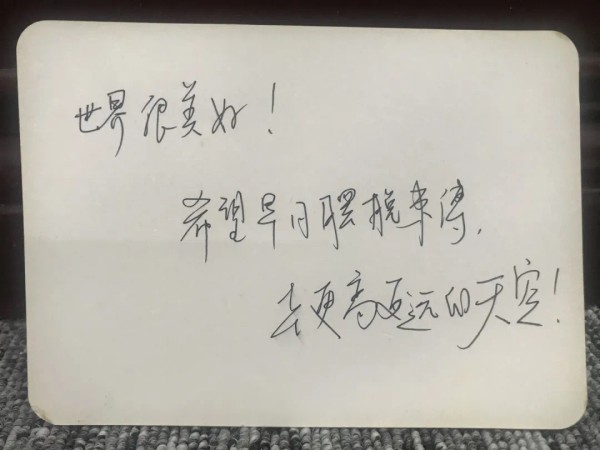 世界很美好！
希望早日摆脱束缚，
去更高更远的天空！